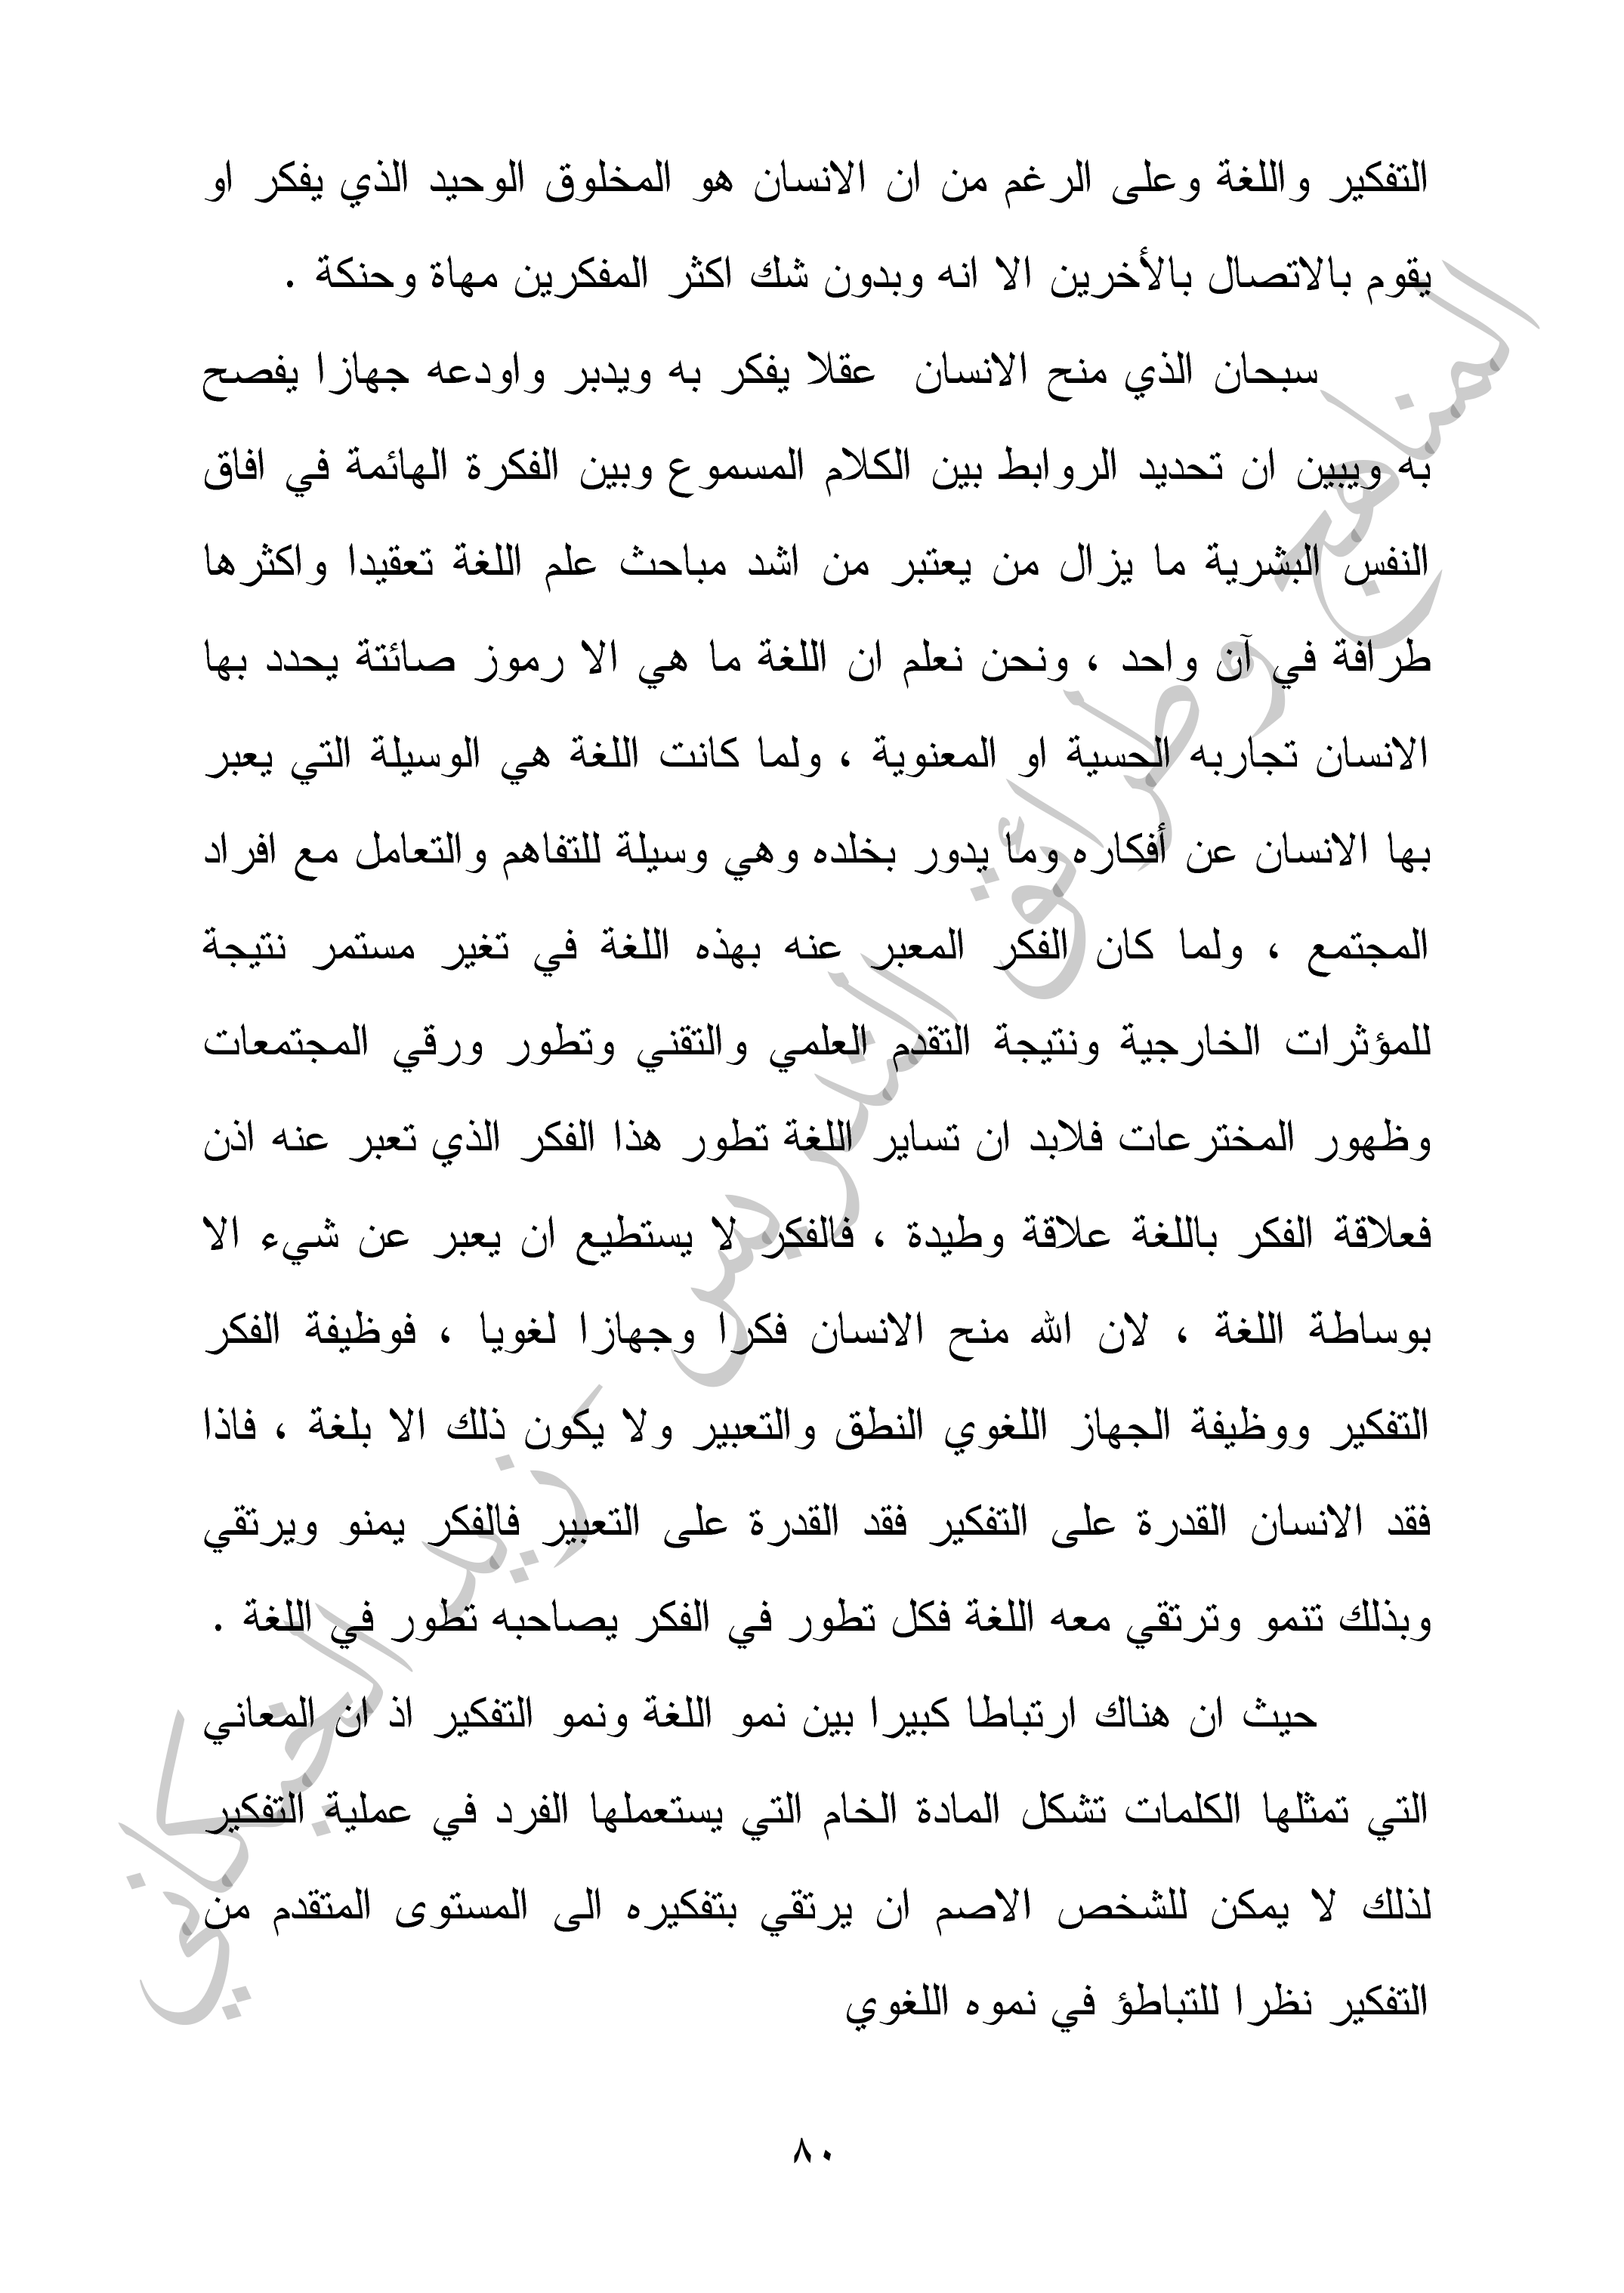 التفكير واللغة وعلى الرغم من ان الانسان هو المخلوق الوحيد الذي يفكر او
يقوم بالاتصال بالأخرين الا انه وبدون شك اكثر المفكرين مهاة وحنكة .
سبحان الذي منح الانسان عقلا يفكر به ويدبر واودعه جهازا يفصح
به ويبين ان تحديد الروابط بين الكلام المسموع وبين الفكرة الهائمة في افاق
النفس البشرية ما يزال من يعتبر من اشد مباحث علم اللغة تعقيدا واكثرها
طرافة في آن واحد ، ونحن نعلم ان اللغة ما هي الا رموز صائتة يحدد بها
الانسان تجاربه الحسية او المعنوية ، ولما كانت اللغة هي الوسيلة التي يعبر
بها الانسان عن أفكاره وما يدور بخلده وهي وسيلة للتفاهم والتعامل مع افراد
المجتمع ، ولما كان الفكر المعبر عنه بهذه اللغة في تغير مستمر نتيجة
للمؤثرات الخارجية ونتيجة التقدم العلمي والتقني وتطور ورقي المجتمعات
وظهور المخترعات فلابد ان تساير اللغة تطور هذا الفكر الذي تعبر عنه اذن
فعلاقة الفكر باللغة علاقة وطيدة ، فالفكر لا يستطيع ان يعبر عن شيء الا
بوساطة اللغة ، لان الله منح الانسان فكرا وجهازا لغويا ، فوظيفة الفكر
التفكير ووظيفة الجهاز اللغوي النطق والتعبير ولا يكون ذلك الا بلغة ، فاذا
فقد الانسان القدرة على التفكير فقد القدرة على التعبير فالفكر يمنو ويرتقي
وبذلك تنمو وترتقي معه اللغة فكل تطور في الفكر يصاحبه تطور في اللغة .
حيث ان هناك ارتباطا كبيرا بين نمو اللغة ونمو التفكير اذ ان المعاني
التي تمثلها الكلمات تشكل المادة الخام التي يستعملها الفرد في عملية التفكير
لذلك لا يمكن للشخص الاصم ان يرتقي بتفكيره الى المستوى المتقدم من
التفكير نظرا للتباطؤ في نموه اللغوي
٨٠
المناهج وطرائق التدريس - زيد الخيكاني